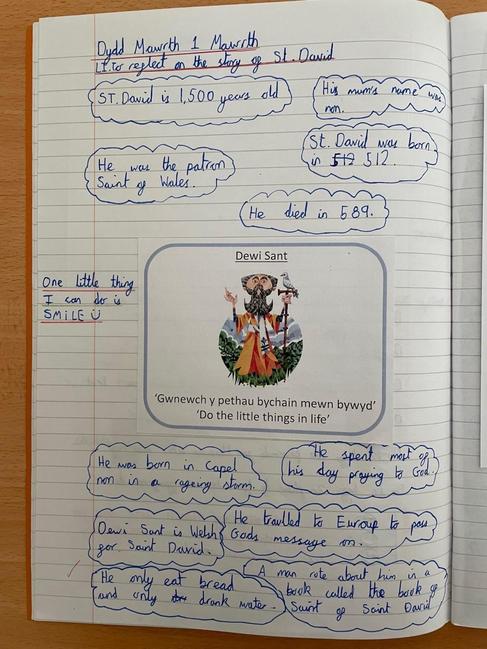 Dydd Mawrth 1 Mawrth
LI. to reflect on the story of St. David
ST. David is 1,500 years old
His mum's name was
non.
St. David was born
in 512 512.
He was the patron
Saint of Wales.
He died in 589.
One little thing
I can do is
SMiLE
Dewi Sant
'Gwnewch y pethau bychain mewn bywyd'
'Do the little things in life'
He was born in Capel
non in a rageing storm.
He spent most of
his day praying to God.
Dewi Sant is Welsh
for Saint David.
He travlled to Euroup to pass
Gods message on.
He only eat bread
and only drank water.
A man rote about him in a
book called the book of
Saint of Saint David